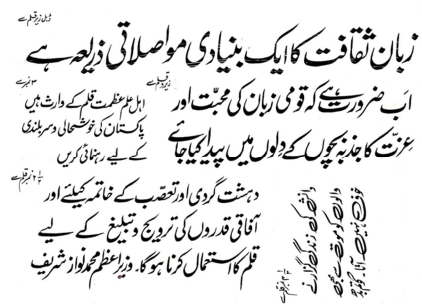 ڈبل زیرو قلم سے
زبان ثقافت کا ایک بنیادی مواصلاتی ذریعہ ہے
زیرو قلم سے
اَب ضرورت ہے کہ قومی زبان کی محبّت اور
عزّت کا جذبہ بچوں کے دِلوں میں پیدا کیا جائے
۳ نمبر سے
اہل علم عظمت قلم کے وارث ہیں
پاکستان کی خوشحالی و سر بلندی
کے لیے رہنمائی کریں
قلم سے
دہشت گردی اور تعصّب کے خاتمہ کیلئے اور
آفاقی قدروں کی ترویج و تبلیغ کے لیے
قلم کا استعمال کرنا ہوگا۔ وزیراعظم محمد نواز شریف
دانش کی زندگی گزارنے
والوں کو موت سے بھی
خوف نہیں آتا۔